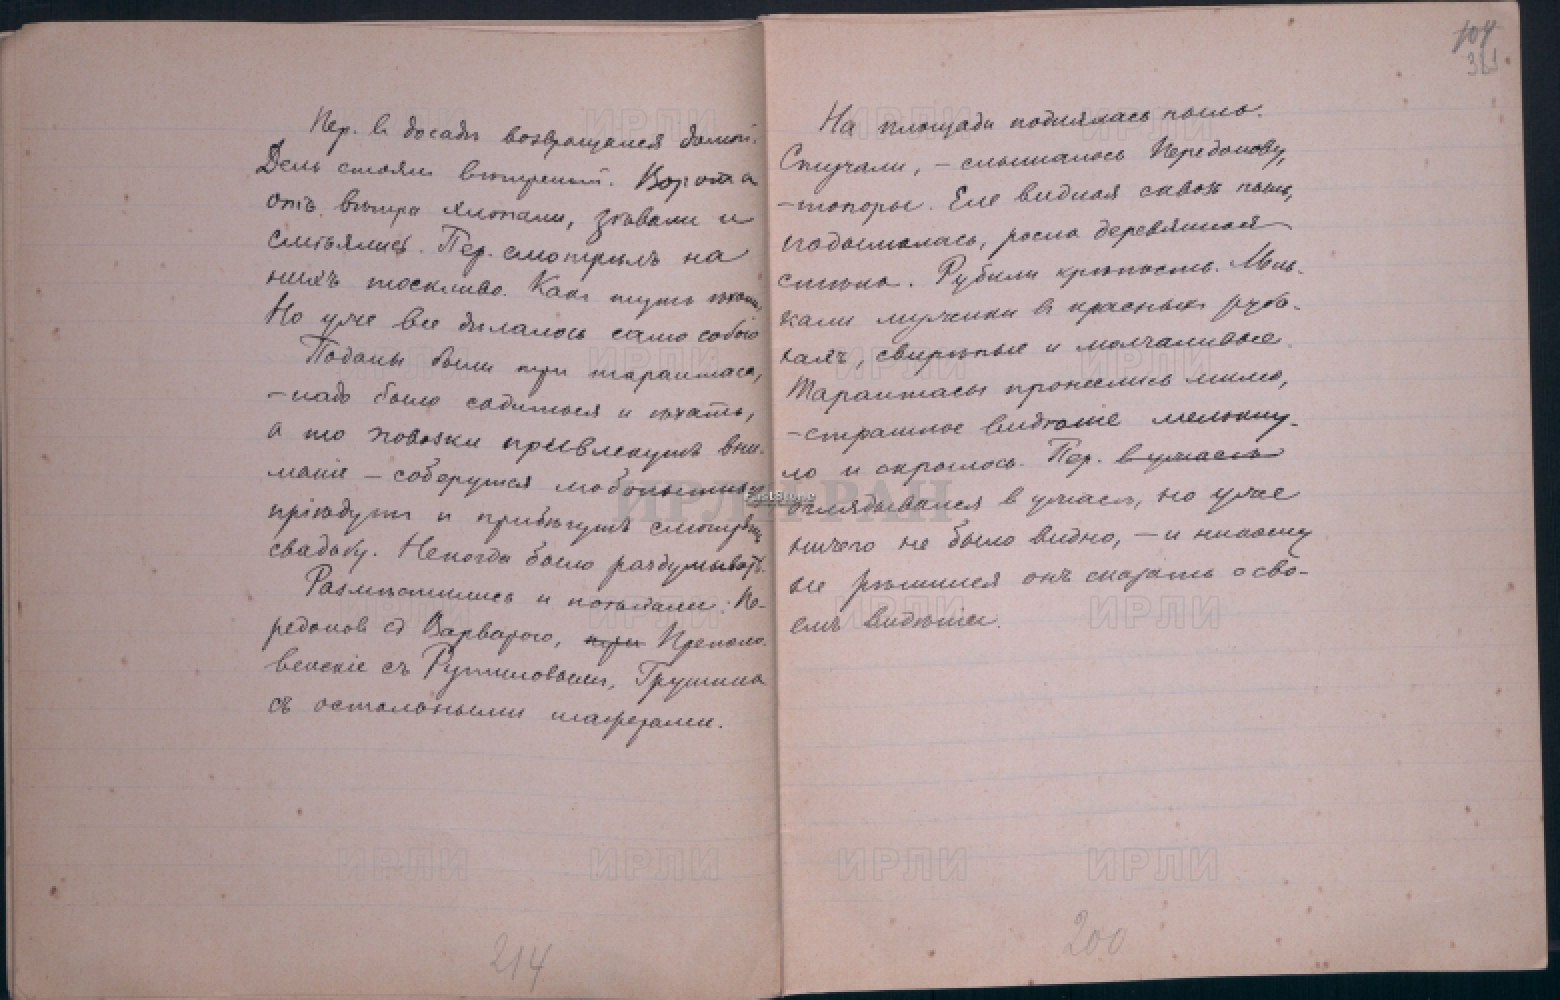 Пер. в досадѣ возвращался домой.
День стоял вѣтреный. Ворота
отъ вѣтра хлопали, зѣвали и
смѣялись. Пер. смотрѣлъ на
нихъ тоскливо. Какъ тутъ ѣхать
Но уже все дѣлалось само собою
Поданы были три тарантаса,
– надо было садиться и ѣхать,
а то повозки привлекутъ вни-
маніе – соберутся любопытные
пріѣдутъ и прибѣгутъ смотрѣть
свадьбу. Некогда было раздумывать.
Размѣстились и поѣхали: Пе-
редонов съ Варварою, три Преполо-
венскіе съ Рутиловым, Грушина
съ остальными шаферами.
На площади поднялась пыль.
Стучали, – слышалось Передонову,
– топоры. Еле видная сквозь пыль,
подымалась, росла деревянная
стѣна. Рубили крѣпость. Мель-
кали мужики в красных руба-
хахъ, свирѣпые и молчаливые.
Тарантасы пронеслись мимо,
– страшное видѣніе мелькну-
ло и скрылось. Пер. в ужасѣ
оглядывался в ужасѣ, но уже
ничего не было видно, – и никому
не рѣшился онъ сказать о сво-
емъ видѣніи.
104
361
214
200
ИРЛИ РАН
FastStone
ИРЛИ ИРЛИ ИРЛИ ИРЛИ
ИРЛИ ИРЛИ ИРЛИ ИРЛИ
ИРЛИ ИРЛИ ИРЛИ ИРЛИ
ИРЛИ ИРЛИ ИРЛИ ИРЛИ